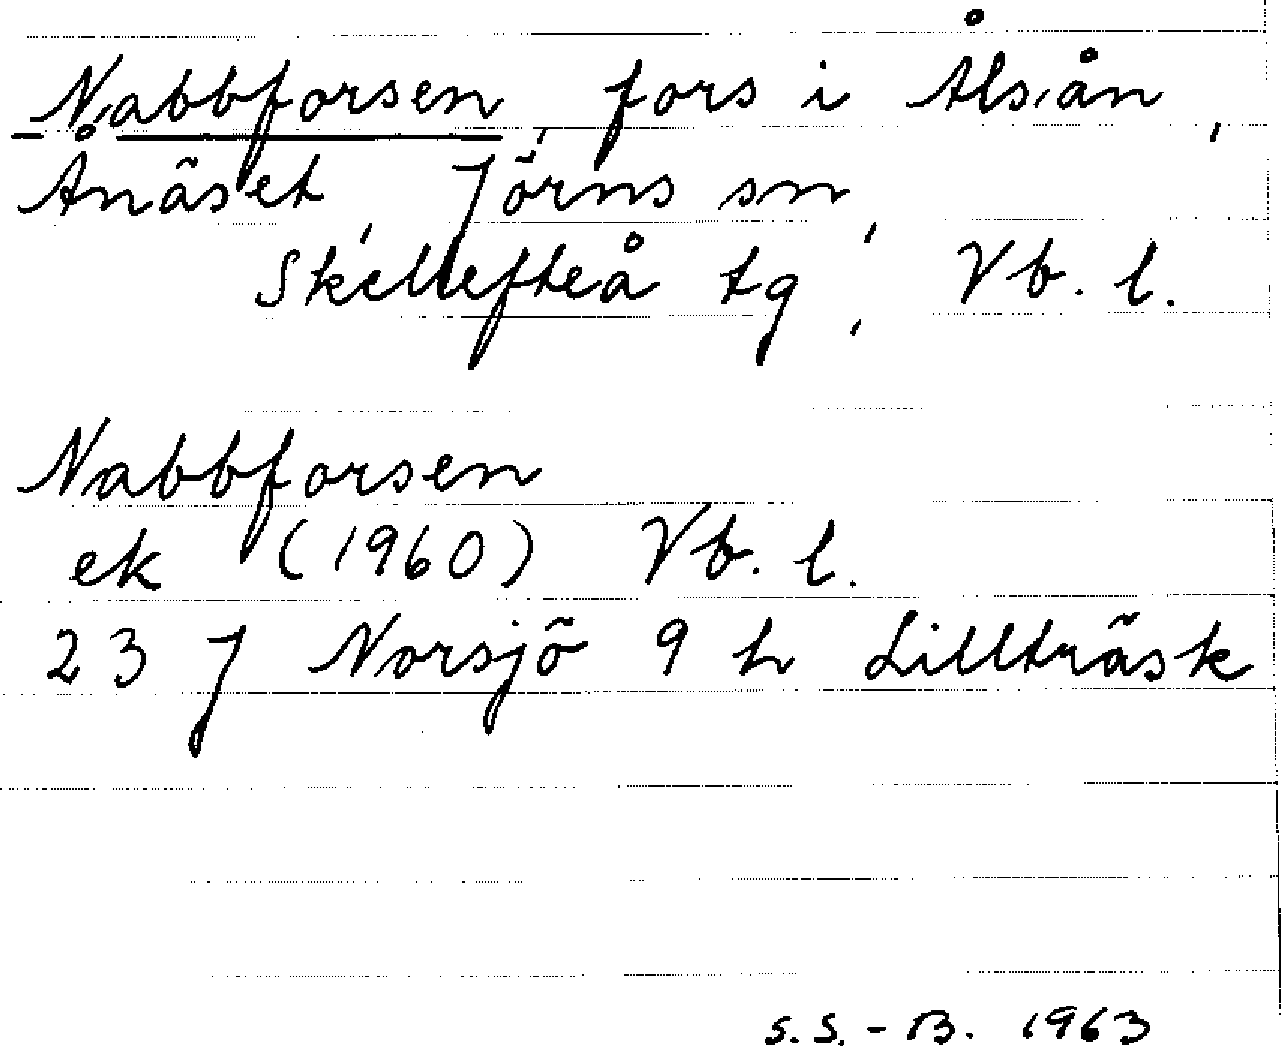 Nabbforsen, fors i Ålsån,
Ånäset, Jörns sn,
Skellefteå tg, Vb. l.
Nabbforsen
ek (1960) Vb. l.
23 J Norsjö 9 h Lillträsk
S.S.-B. 1963